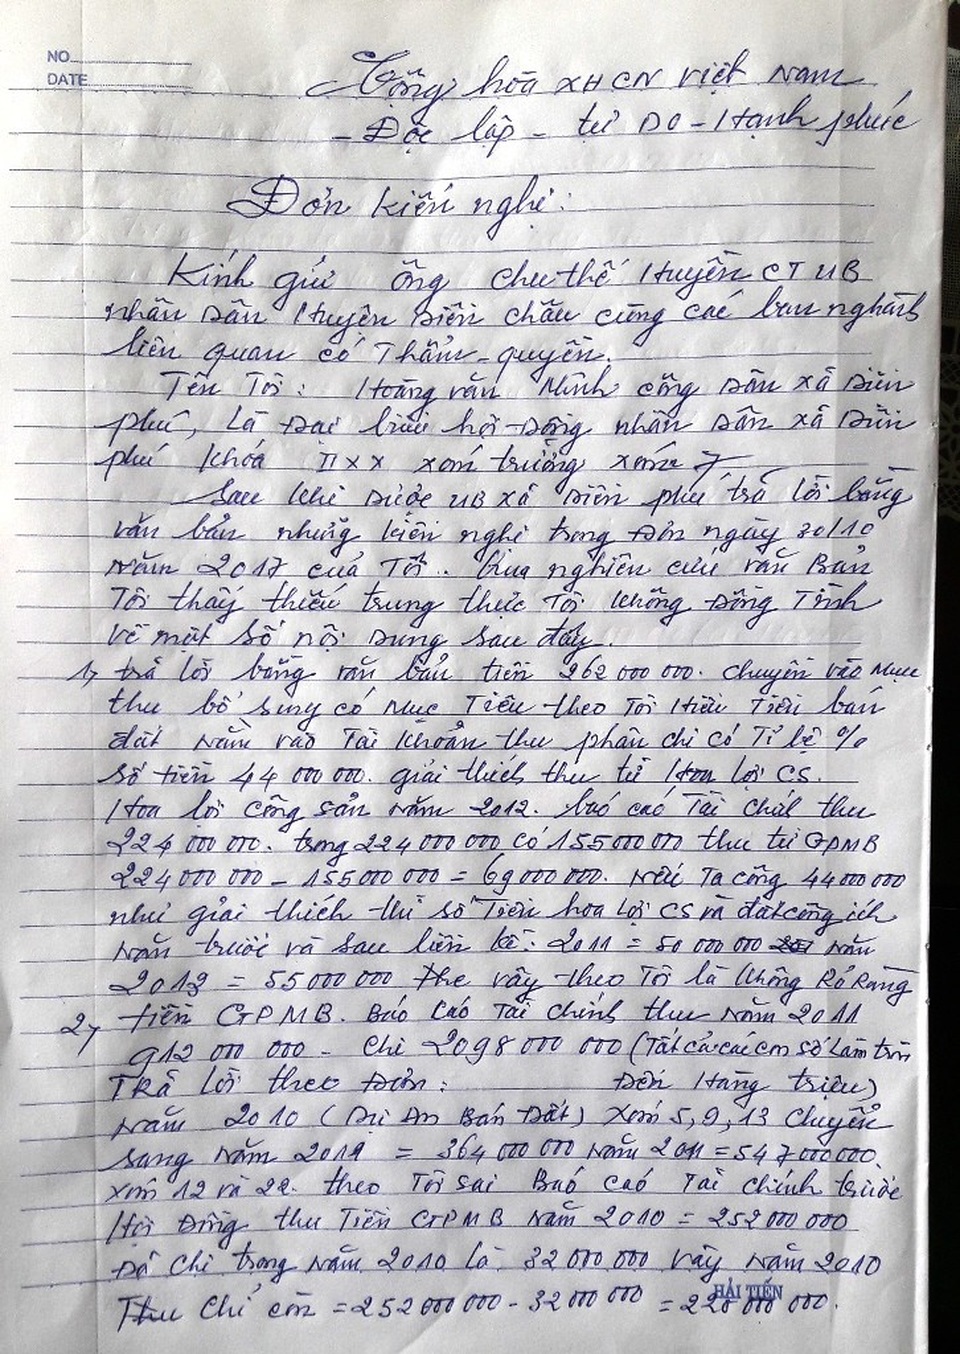 NO
DATE
Cộng hòa XHCN Việt Nam
- Độc lập - tự Do - Hạnh phúc
Đơn kiến nghị:
Kính gửi ông chủ thế Huyện CTUB
nhân Dân Huyện Diễn Châu cùng các ban nghành
liên quan có Thẩm quyền.
Tên Tôi: Hoàng văn Minh công Dân xã Diễn
phú, Là Đại biểu hội Đồng nhân Dân xã Diễn
phú khóa IIXX xóm trưởng xóm 7
Sau khi Được UB xã Diễn phú trả lời bằng
văn bản những kiến nghị trong Đơn ngày 30/10
năm 2017 của Tôi.. Qua nghiên cứu văn Bản
Tôi thấy thiếu trung thực Tôi không Đồng Tình
về một số nội Dung sau đây.
1, trả lời bằng văn bản tiền 262 000 000. chuyển vào mục
thu bổ sung có mục Tiêu theo Tôi Hiểu Tiền bán
đất nằm vào Tài khoản thu phân chi có Tỉ lệ %
số tiền 44 000 000. giải thích thu từ Hoa lợi CS.
Hoa lợi công sản năm 2012. báo cáo Tài chính thu
224 000 000. trong 224 000 000 có 155 000 000 thu từ GPMB
224 000 000 - 155 000 000 = 69 000 000. nếu Ta cộng 44 000 000
như giải thích thì số Tiền hoa lợi CS và đất công ích
năm trước và sau liền kề: 2011 = 50 000 000 năm
2013 = 55 000 000 như vậy theo Tôi là không Rõ Ràng
2, Tiền GPMB. Báo cáo Tài chính thu năm 2011
912 000 000 - chi 2098 000 000 (Tất cả các con số Làm tròn
Trả lời theo Đơn: Đến Hàng triệu)
năm 2010 (Dự Án Bán Đất) xóm 5, 9, 13 chuyển
sang năm 2011 = 364 000 000 năm 2011 = 547 000 000.
xóm 12 và 22. theo Tôi sai Báo cáo Tài chính trước
Hội Đồng thu Tiền GPMB năm 2010 = 252 000 000
Đã chi trong năm 2010 là 32 000 000 vậy năm 2010
Thu chi còn = 252 000 000 - 32 000 000 = 220 000 000.
HẢI TIẾN